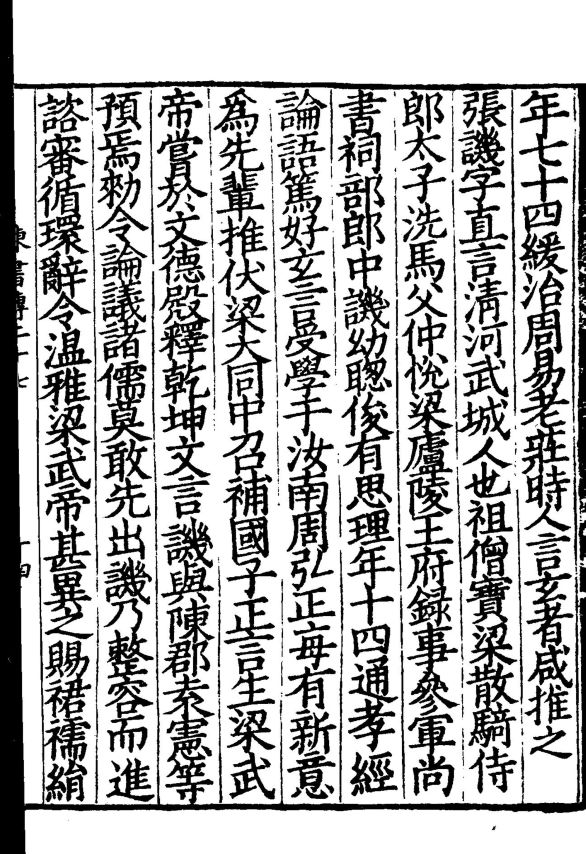 年七十四緩治周易老莊時人言玄者咸推之
張譏字直言清河武城人也祖僧寶梁散騎侍
郎太子洗馬父仲悅梁廬陵王府録事參軍尚
書祠部郎中譏幼聦俊有思理年十四通孝經
論語篤好玄言受學于汝南周弘正每有新意
爲先輩推伏梁大同中召補國子正言生梁武
帝嘗於文德殿釋乾坤文言譏與陳郡袁憲等
預焉勑令論議諸儒莫敢先出譏乃整容而進
諮審循環辭令温雅梁武帝甚異之賜裙襦絹
陳書傳二十七
十四